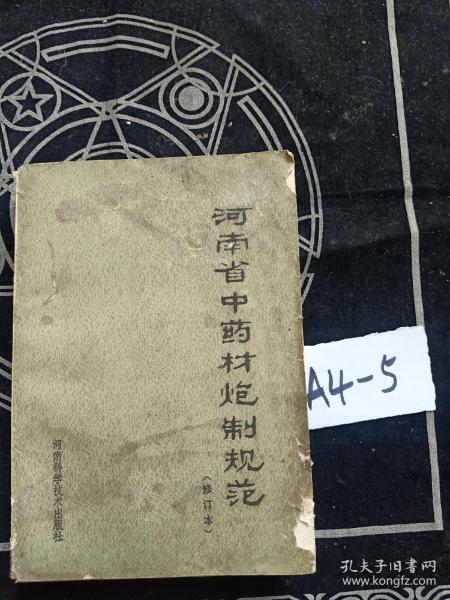 河南省中药材炮制规范
(修订本)
河南科学技术出版社
A4-5
孔夫子旧书网
www.kongfz.com